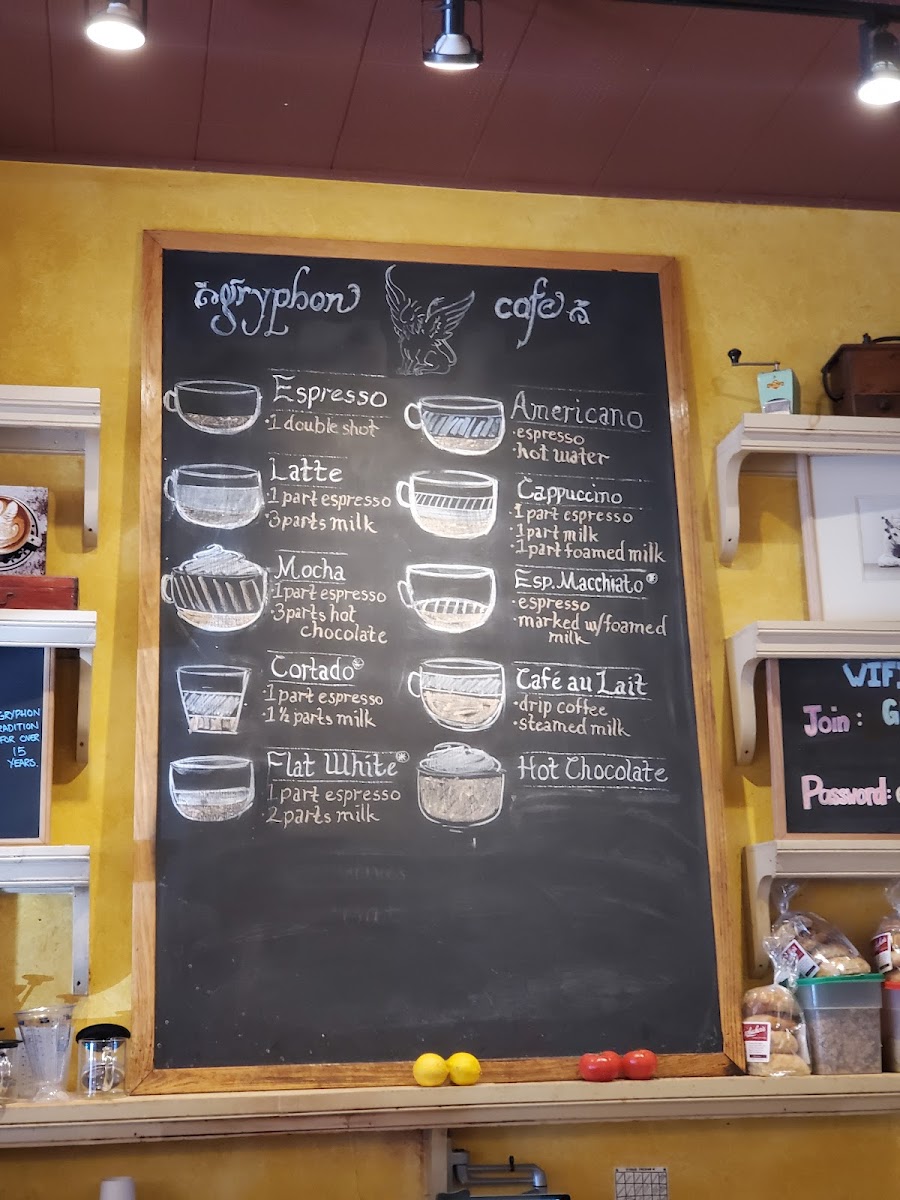 gryphon cafe
Espresso
·1 double shot
Latte
·1 part espresso
·3 parts milk
Mocha
·1 part espresso
·3 parts hot
chocolate
Cortado
·1 part espresso
·1 ½ parts milk
Flat White
·1 part espresso
·2 parts milk
Americano
·espresso
·hot water
Cappuccino
·1 part espresso
·1 part milk
·1 part foamed milk
Esp. Macchiato
·espresso
·marked w/foamed
milk
Café au Lait
·drip coffee
·steamed milk
Hot Chocolate
GRYPHON
RADITION
FOR OVER
15
YEARS.
WIF
Join: G
Password: